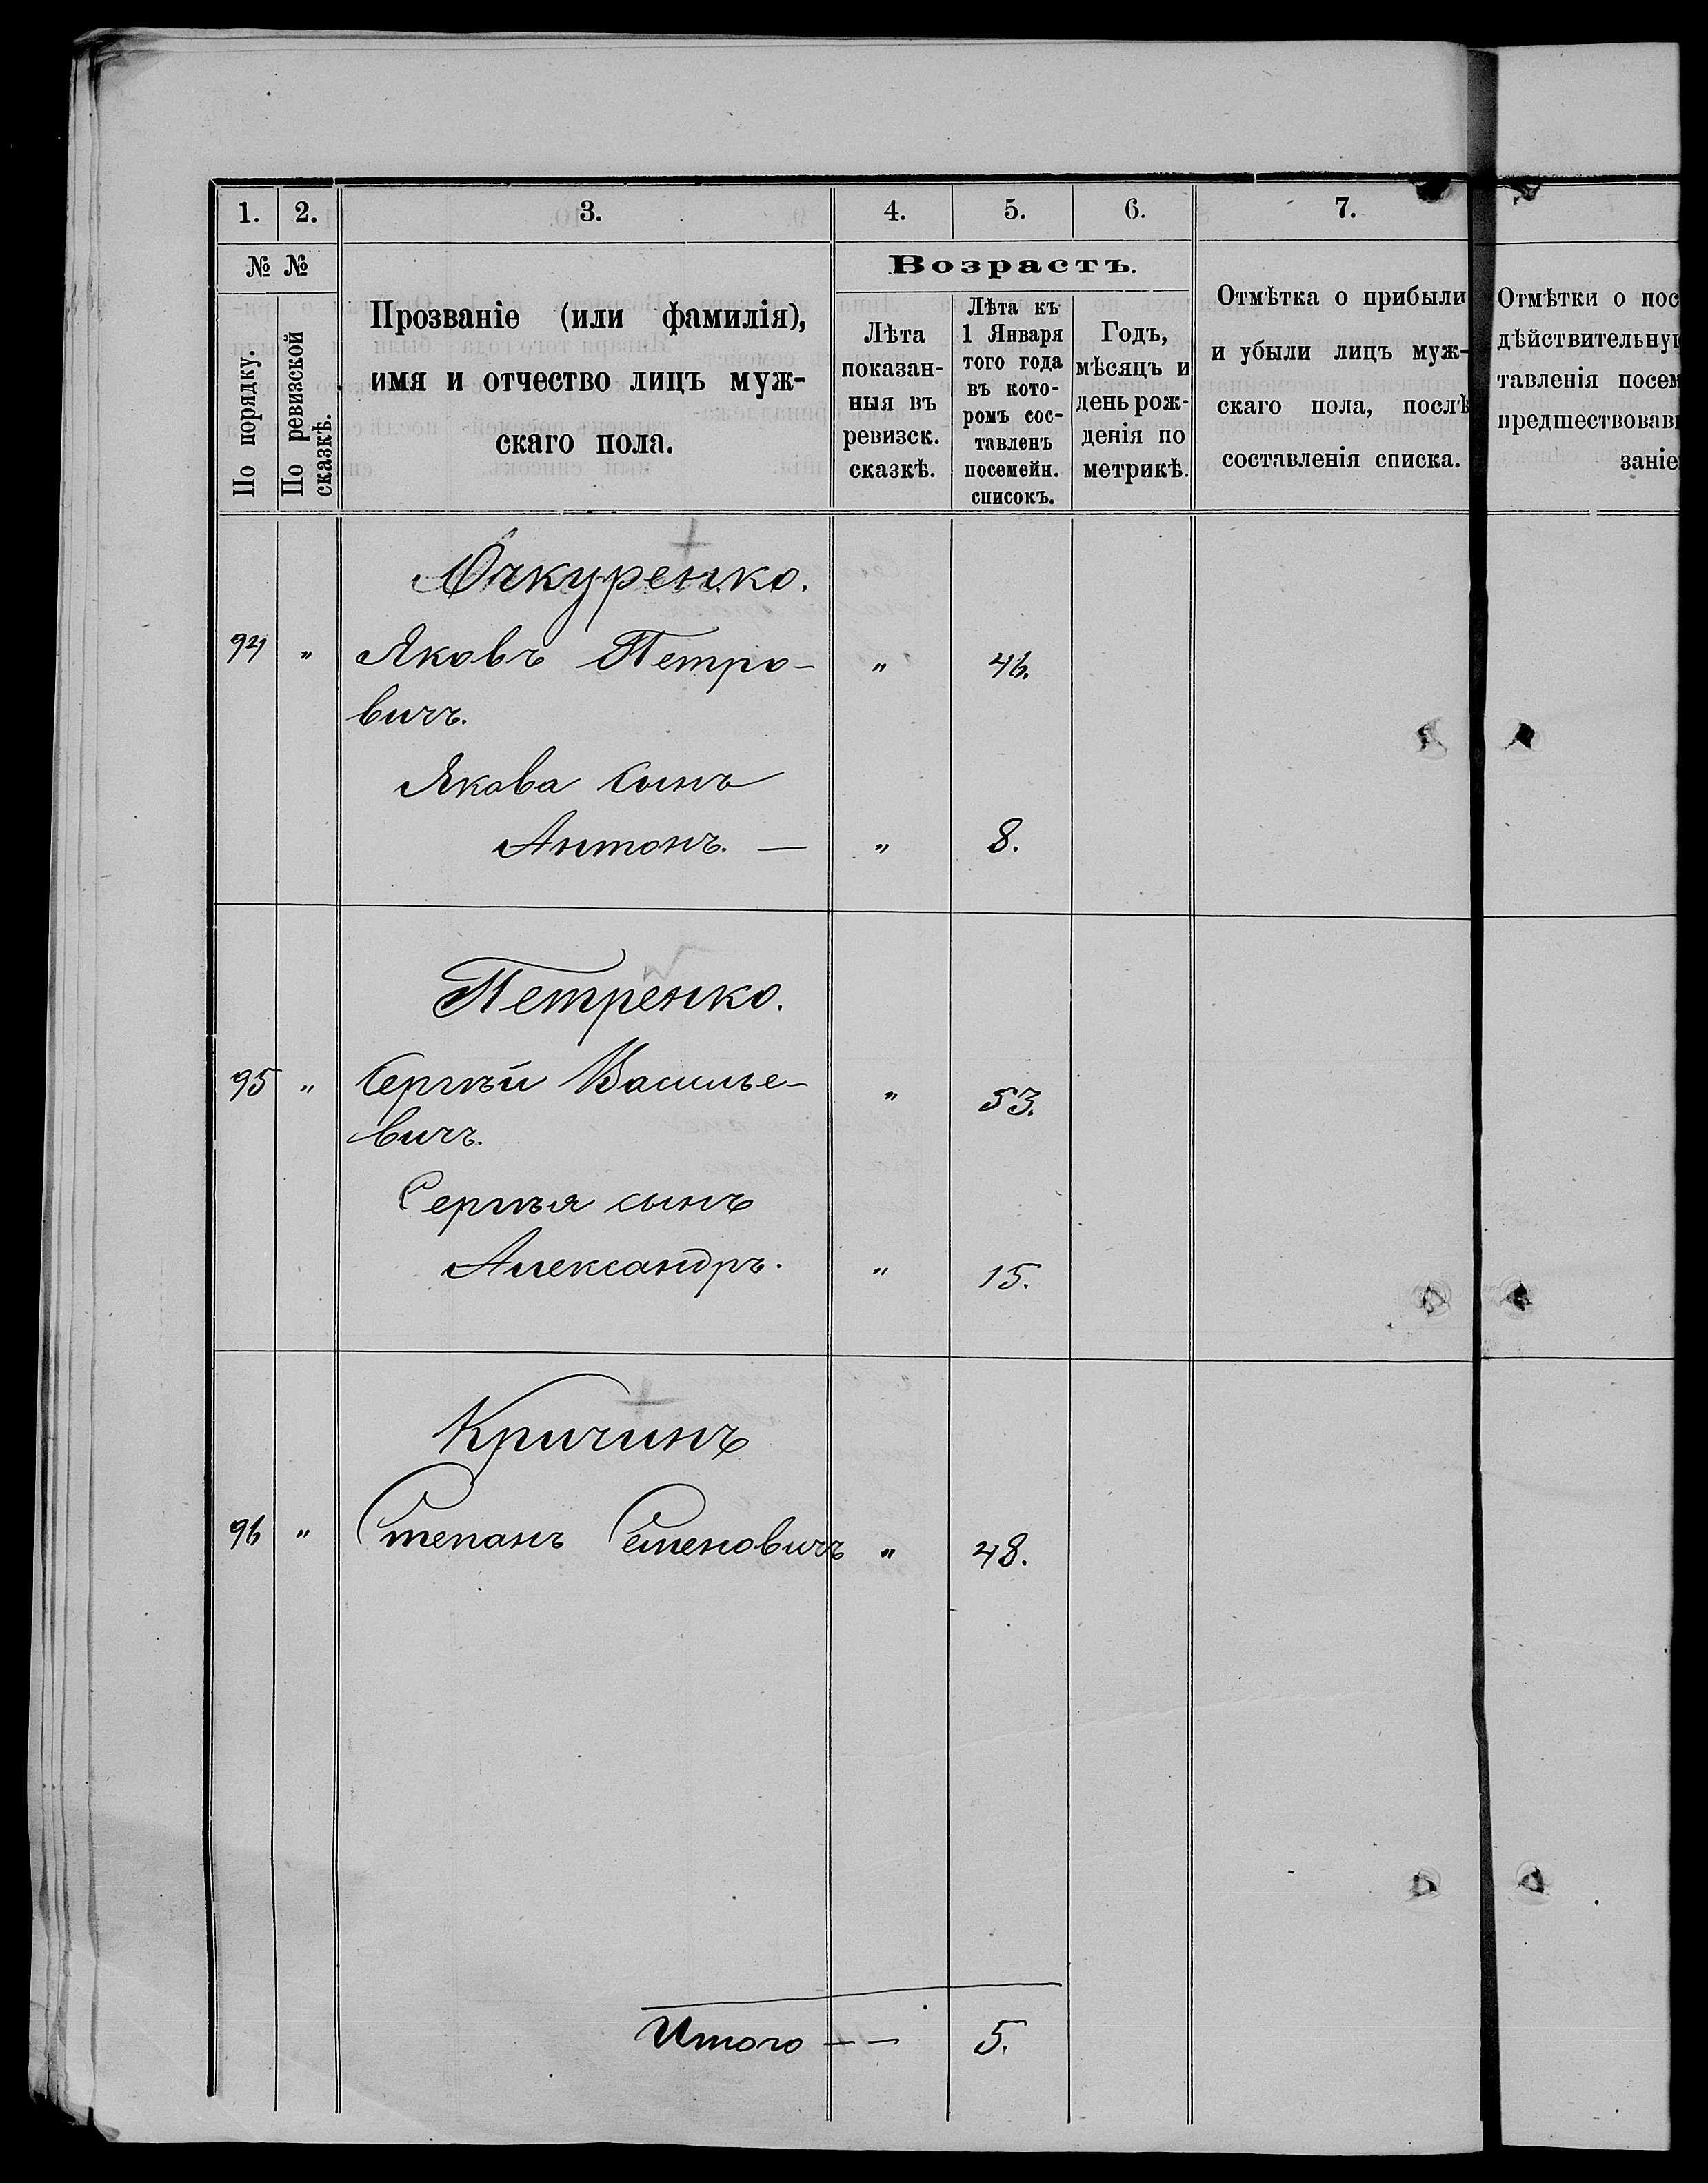 1. 2. 3. 4. 5. 6. 7.
№ №
По порядку.
По ревизской сказкѣ.
Прозваніе (или фамилія),
имя и отчество лицъ муж-
скаго пола.
Возрастъ.
Лѣта
показан-
ныя въ
ревизск.
сказкѣ.
Лѣта къ
1 Января
того года
въ кото-
ромъ сос-
тавленъ
посемейн.
списокъ.
Годъ,
мѣсяцъ и
день рож-
денія по
метрикѣ.
Отмѣтка о прибыли
и убыли лицъ муж-
скаго пола, послѣ
составленія списка.
Отмѣтки о пос
дѣйствительную
тавленія посем
предшествовавш
заніем
Очкуренко.
94 " Яковъ Петро- " 46.
вичъ.
Якова сынъ
Антонъ. — " 8.
Петренко.
95 " Сергѣй Василье- " 53.
вичъ.
Сергѣя сынъ
Александръ. " 15.
Кричинъ
96 " Степанъ Семеновичъ " 48.
Итого — — 5.